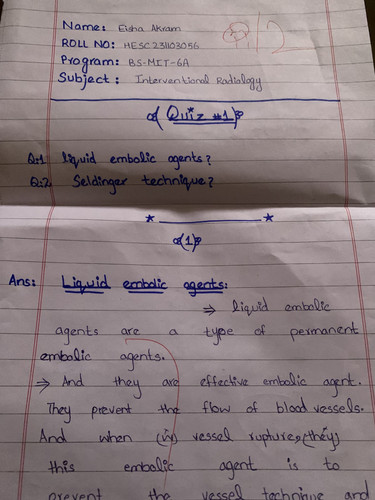 Name: Eisha Akram
ROLL NO: HESC231103056
Program: BS-MIT-6A
Subject: Interventional Radiology
(Quiz #1)
Q:1 liquid embolic agents?
Q:2 Seldinger technique?
(1)
Ans: Liquid embolic agents:
⇒ liquid embolic
agents are a type of permanent
embolic agents.
⇒ And they are effective embolic agent.
They prevent the flow of blood vessels.
And when (is) vessel rupture, (they)
this embolic agent is to
prevent the vessel technique and